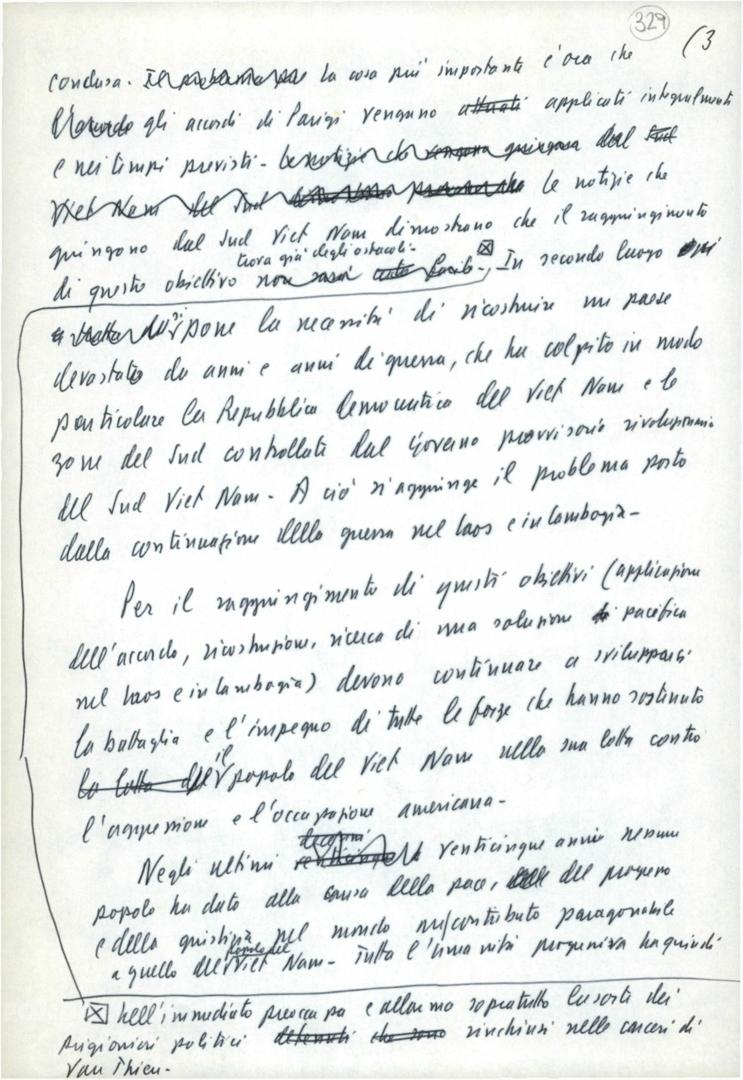 329
(3
conclusa. Il problema per la cosa più importante è ora che
l'accordo gli accordi di Parigi vengano attuati applicati integralmente
e nei tempi previsti - Le notizie che vengono giungono dal Sud
Viet Nam del Sud dimostrano le notizie che
giungono dal Sud Viet Nam dimostrano che il raggiungimento
trova già degli ostacoli -
di questo obiettivo non sarà facile - ☒ In secondo luogo
si pone la necessità di ricostruire un paese
devastato da anni e anni di guerra, che ha colpito in modo
particolare la Repubblica democratica del Viet Nam e le
zone del Sud controllate dal Governo provvisorio rivoluzionario
del Sud Viet Nam - A ciò si aggiunge il problema posto
dalla continuazione della guerra nel Laos e in Cambogia -
Per il raggiungimento di questi obiettivi (applicazione
dell'accordo, ricostruzione, ricerca di una soluzione di pacifica
nel Laos e in Cambogia) devono continuare a svilupparsi
la battaglia e l'impegno di tutte le forze che hanno sostenuto
il
la lotta del popolo del Viet Nam nella sua lotta contro
l'aggressione e l'occupazione americana -
decenni
Negli ultimi venticinque venticinque anni nessun
popolo ha dato alla causa della pace, del progresso
e della giustizia nel mondo un contributo paragonabile
popolo del
a quello del Viet Nam - Tutta l'umanità progressiva ha quindi
☒ Nell'immediato preoccupa e allarma sopratutto la sorte dei
prigionieri politici detenuti che sono rinchiusi nelle carceri di
Van Thieu -